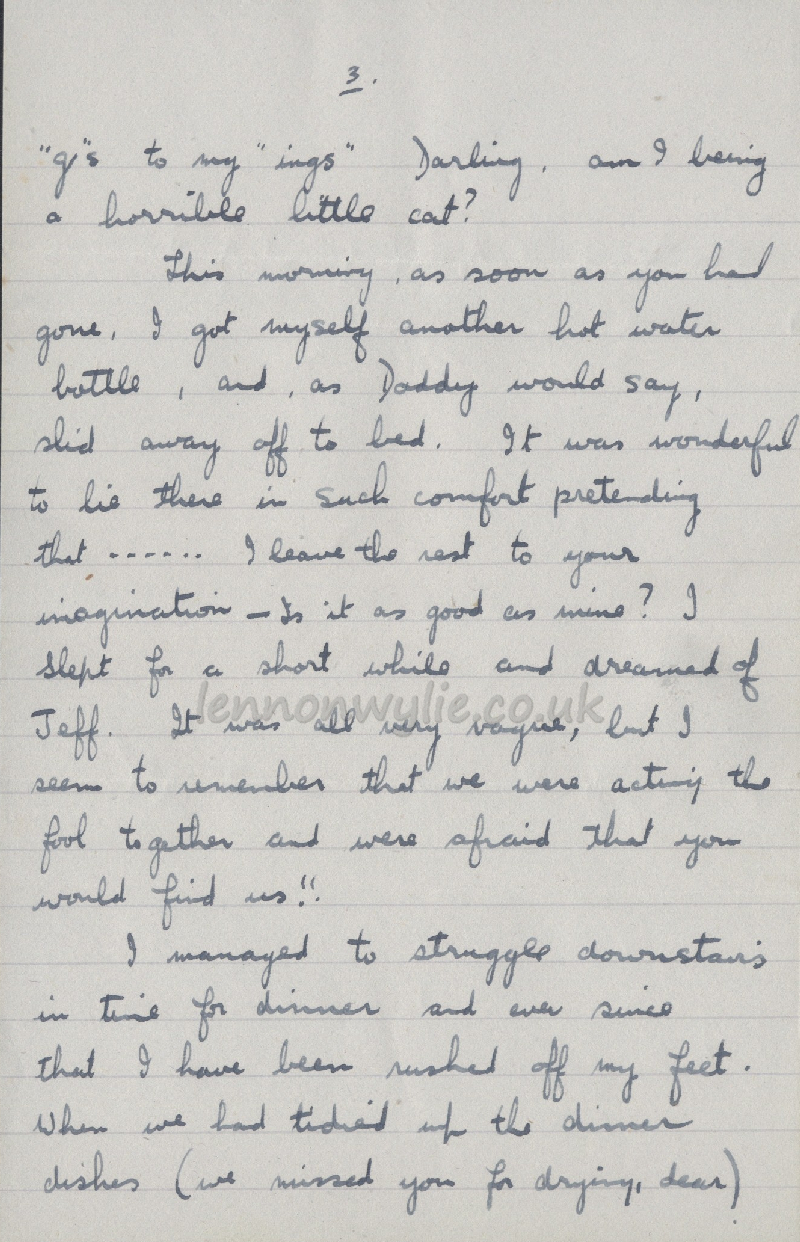 3.
"g"s to my "ings" Darling, am I being
a horrible little cat?
This morning, as soon as you had
gone, I got myself another hot water
bottle, and, as Daddy would say,
slid away off to bed. It was wonderful
to lie there in such comfort pretending
that ------ I leave the rest to your
imagination - Is it as good as mine? I
slept for a short while and dreamed of
Jeff. It was all very vague, but I
seem to remember that we were acting the
fool together and were afraid that you
would find us!!
I managed to struggle downstairs
in time for dinner and ever since
that I have been rushed off my feet.
When we had tidied up the dinner
dishes (we missed you for drying, dear)
lennonwylie.co.uk